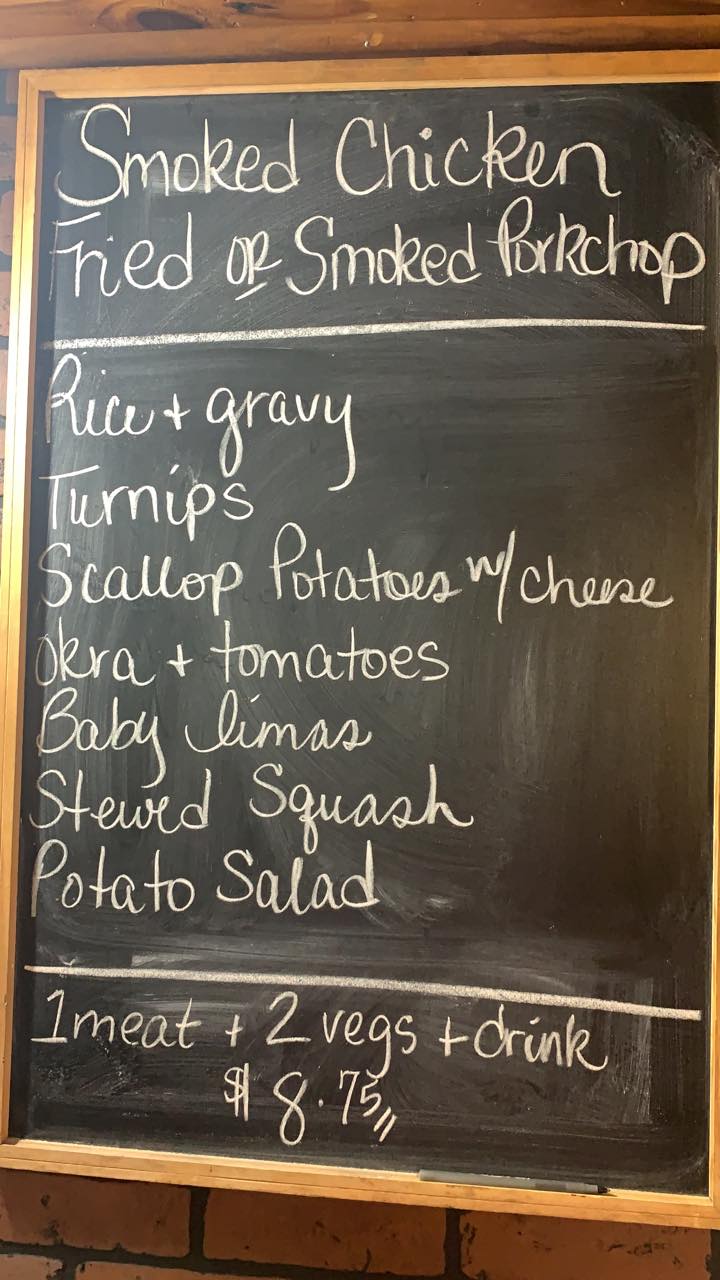 Smoked Chicken
Fried OR Smoked Porkchop
Rice + gravy
Turnips
Scallop Potatoes w/ cheese
Okra + tomatoes
Baby limas
Stewed Squash
Potato Salad
1 meat + 2 vegs + drink
$8.75